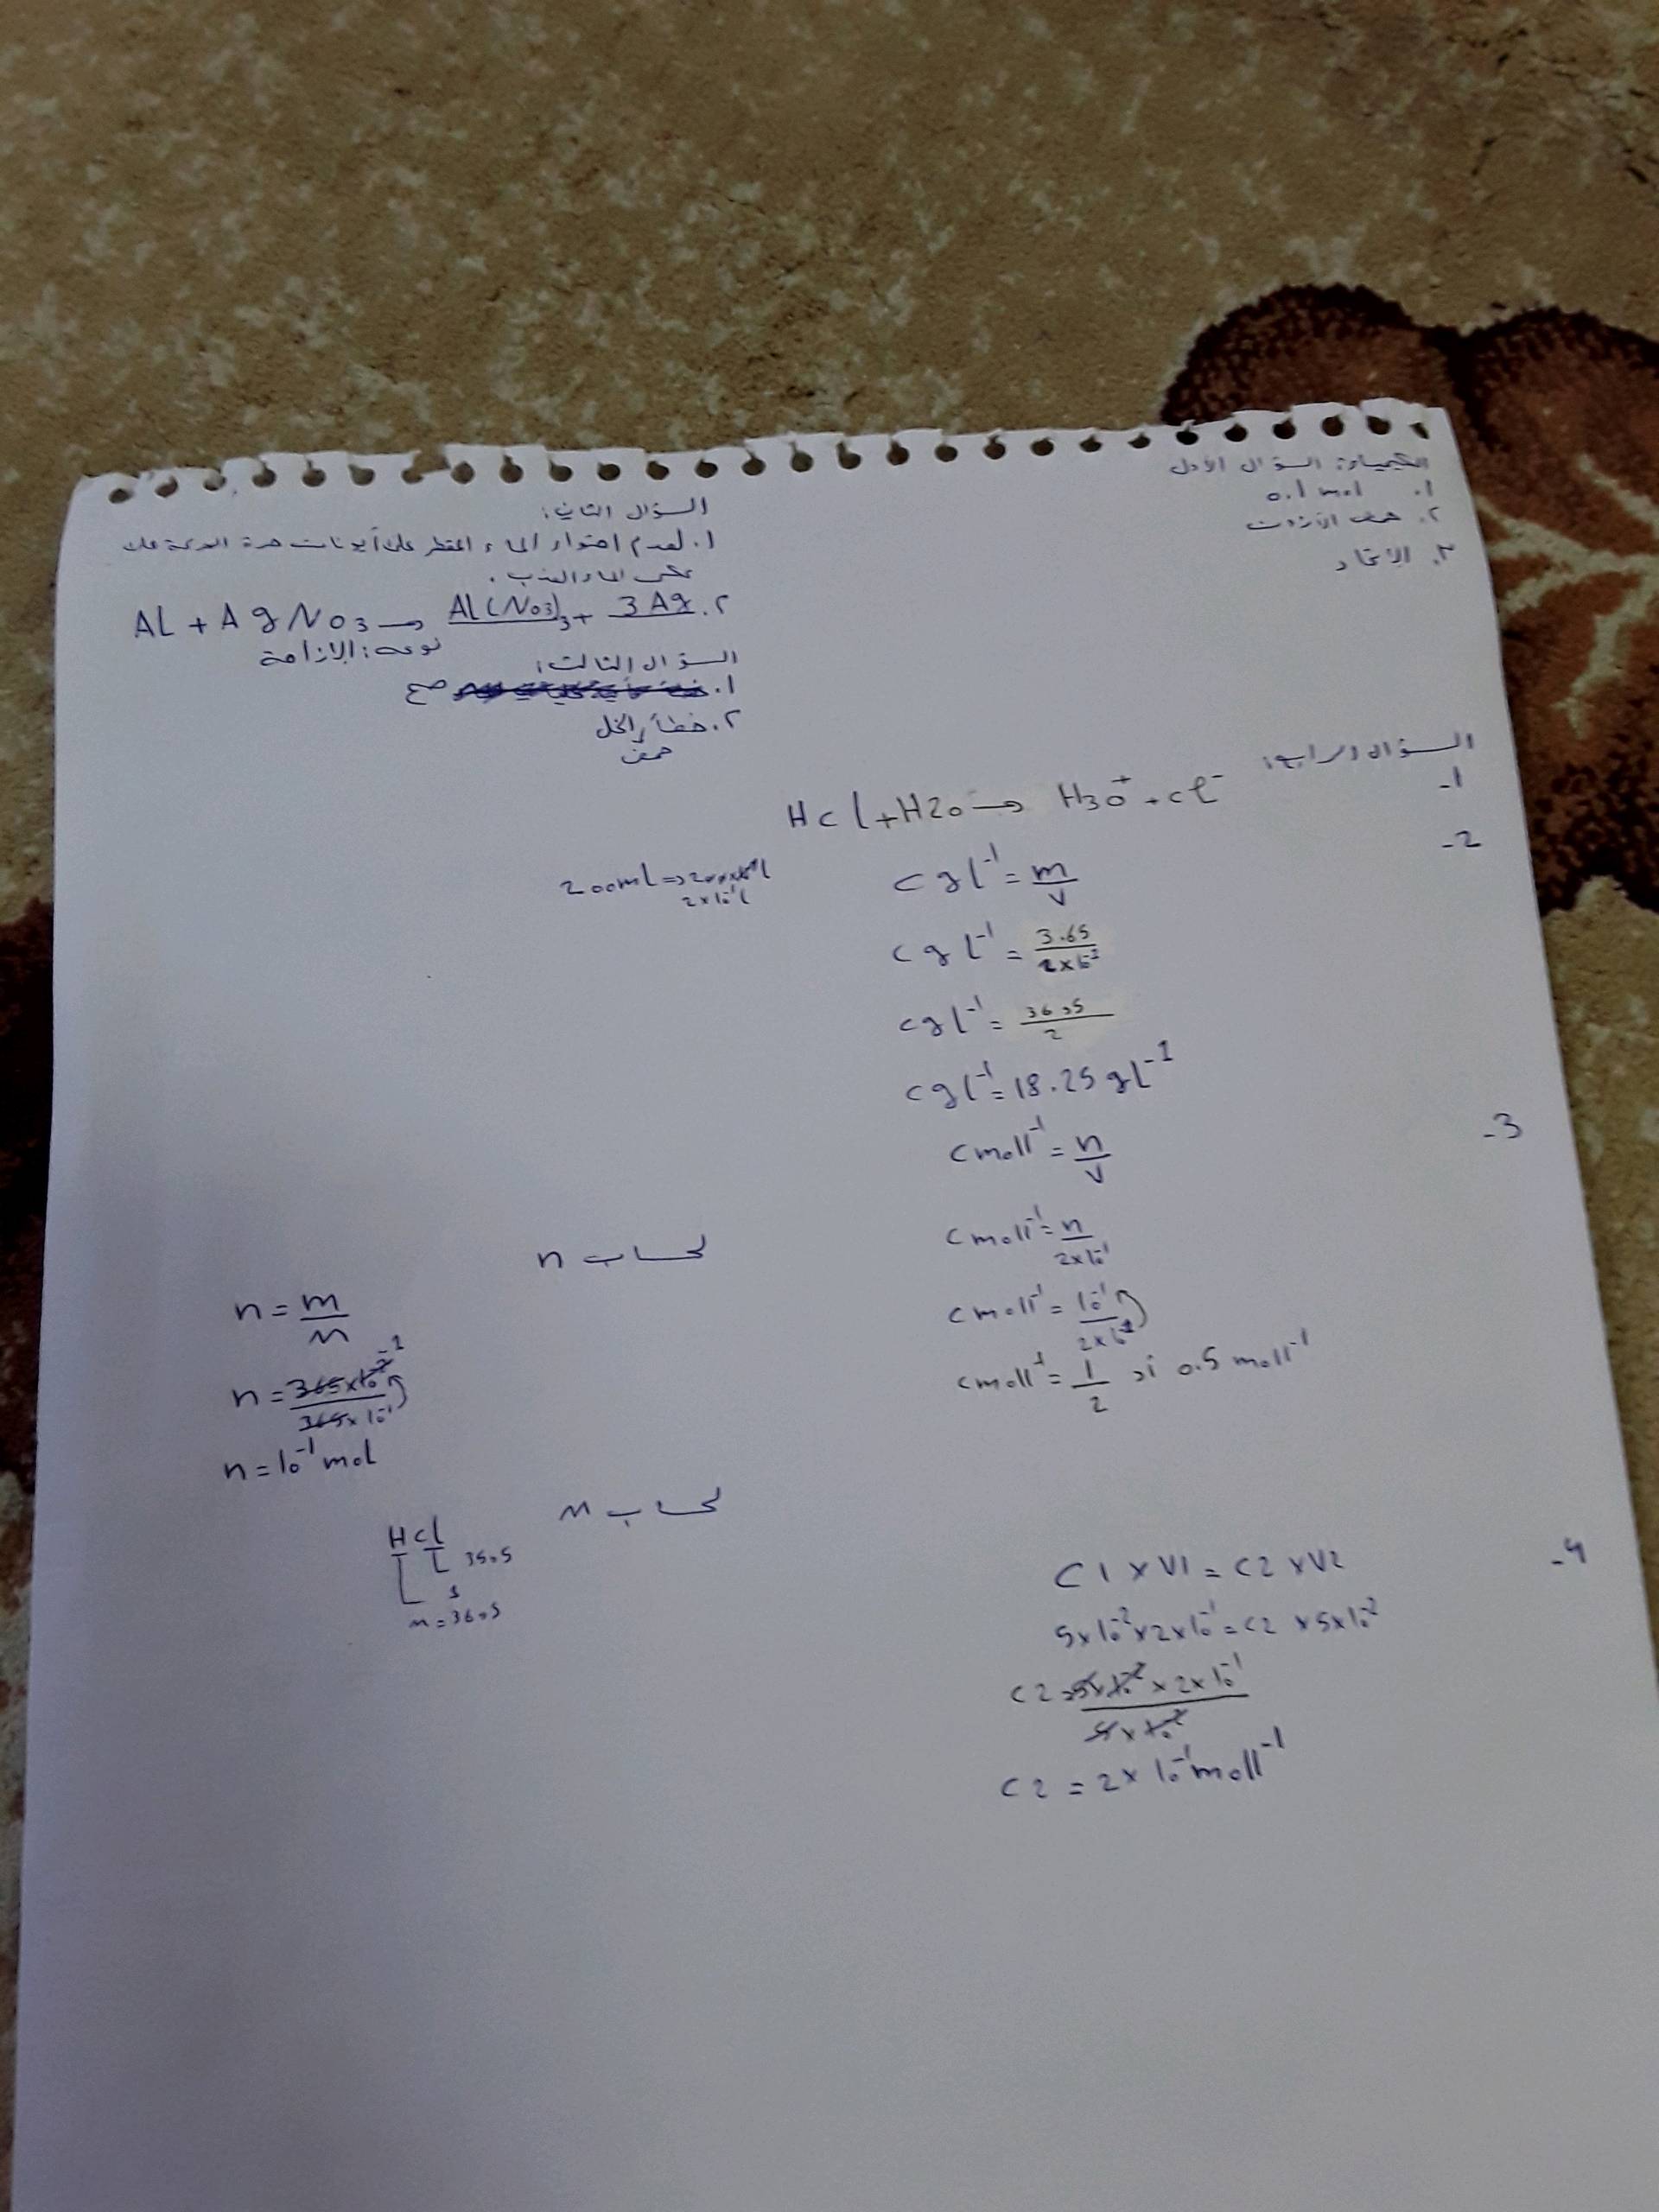 الكيمياء: السؤال الأول
1. 0.1 mol
2. حمض الآزوت
3. الاتحاد
السؤال الثاني:
1. لعدم احتواء الماء المقطر على أيونات حرة الحركة على
عكس الماء العذب.
2. AL + AgNO3 → Al(NO3)3 + 3Ag
نوعه: الإزاحة
السؤال الثالث:
1. صح
2. خطأ، الخل
حمض
السؤال الرابع:
1- HCl + H2O → H3O+ + Cl-
2- C gl-1 = m/v
200ml => 2×10-1 l
C gl-1 = 3.65/2×10-1
C gl-1 = 36.5/2
C gl-1 = 18.25 gl-1
3- C moll-1 = n/v
C moll-1 = n/2×10-1
C moll-1 = 10-1/2×10-1
C moll-1 = 1/2 أو 0.5 moll-1
لحساب n
n = m/M
n = 365×10-2/365×10-1
n = 10-1 mol
لحساب M
HCl
35.5
1
M = 36.5
4- C1 × V1 = C2 × V2
5×10-2 × 2×10-1 = C2 × 5×10-2
C2 = 5×10-2 × 2×10-1/5×10-2
C2 = 2×10-1 moll-1